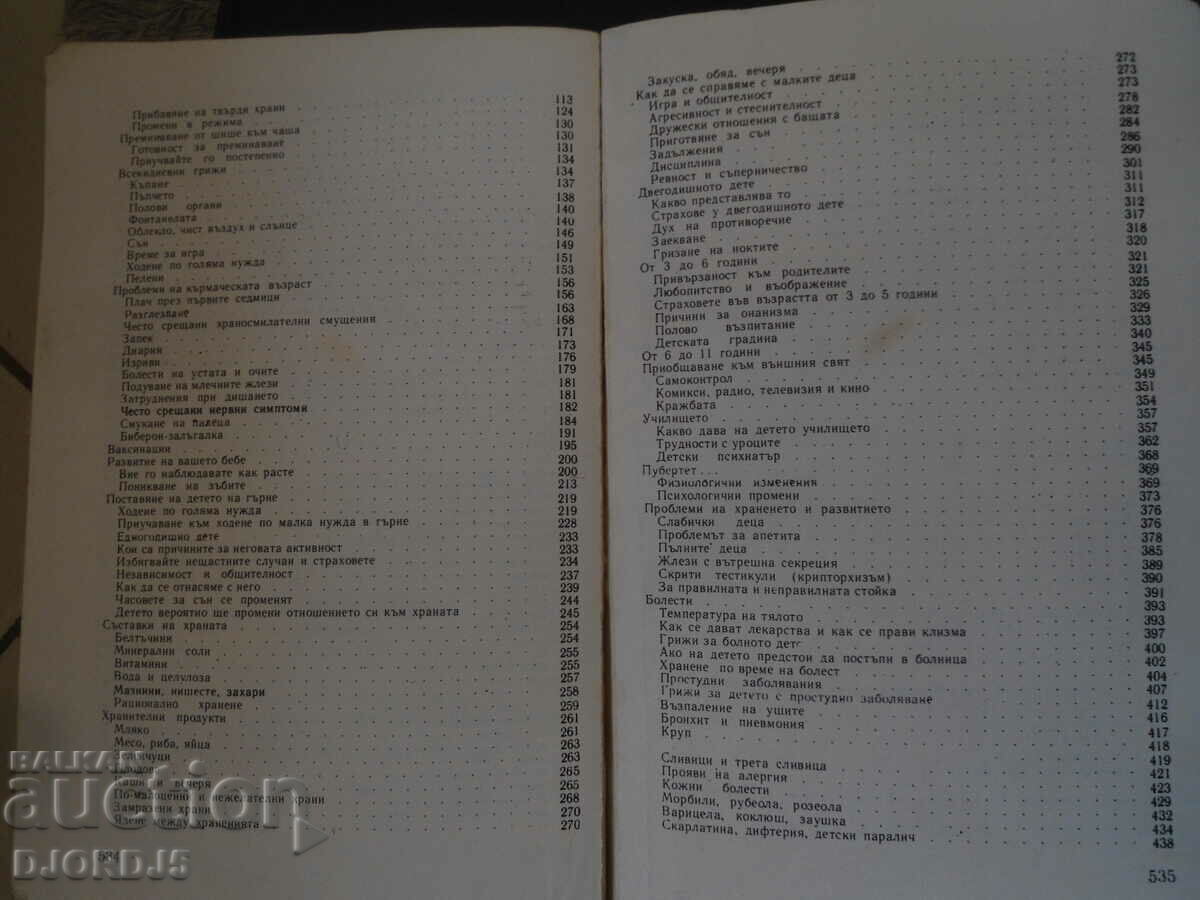 Прибавяне на твърди храни 113
Промени в режима 124
Преминаване от шише към чаша 130
Готовност за преминаване 130
Приучвайте го постепенно 131
Всекидневни грижи 134
Къпане 134
Пъпчето 137
Полови органи 138
Фонтанелата 140
Облекло, чист въздух и слънце 140
Сън 146
Време за игра 149
Ходене по голяма нужда 151
Пелени 153
Проблеми на кърмаческата възраст 156
Плач през първите седмици 156
Разглезване 163
Често срещани храносмилателни смущения 168
Запек 171
Диария 173
Изриви 176
Болести на устата и очите 179
Подуване на млечните жлези 181
Затруднения при дишането 181
Често срещани нервни симптоми 182
Смукане на палеца 184
Биберон-залъгалка 191
Ваксинации 195
Развитие на вашето бебе 200
Вие го наблюдавате как расте 200
Поникване на зъбите 213
Поставяне на детето на гърне 219
Ходене по голяма нужда 219
Приучаване към ходене по малка нужда в гърне 228
Едногодишно дете 233
Кои са причините за неговата активност 233
Избягвайте нещастните случаи и страховете 234
Независимост и общителност 237
Как да се отнасяме с него 239
Часовете за сън се променят 244
Детето вероятно ще промени отношението си към храната 245
Съставки на храната 254
Белтъчини 254
Минерални соли 255
Витамини 255
Вода и целулоза 257
Мазнини, нишесте, захари 258
Рационално хранене 259
Хранителни продукти 261
Мляко 261
Месо, риба, яйца 263
Зеленчуци 263
Плодове 265
Каши и вечеря 265
По-малоценни и нежелателни храни 268
Замразени храни 270
Ядене между храненията 270
534
Закуска, обяд, вечеря 272
Как да се справяме с малките деца 273
Игра и общителност 273
Агресивност и стеснителност 278
Дружески отношения с бащата 282
Приготвяне за сън 284
Задължения 286
Дисциплина 290
Ревност и съперничество 301
Двегодишното дете 311
Какво представлява то 311
Страхове у двегодишното дете 312
Дух на противоречие 317
Заекване 318
Гризане на ноктите 320
От 3 до 6 години 321
Привързаност към родителите 321
Любопитство и въображение 325
Страховете във възрастта от 3 до 5 години 326
Причини за онанизма 329
Полово възпитание 333
Детската градина 340
От 6 до 11 години 345
Приобщаване към външния свят 345
Самоконтрол 349
Комикси, радио, телевизия и кино 351
Кражбата 354
Училището 357
Какво дава на детето училището 357
Трудности с уроците 362
Детски психиатър 368
Пубертет... 369
Физиологични изменения 369
Психологични промени 373
Проблеми на храненето и развитието 376
Слабички деца 376
Проблемът за апетита 378
Пълните деца 385
Жлези с вътрешна секреция 389
Скрити тестикули (крипторхизъм) 390
За правилната и неправилната стойка 391
Болести 393
Температура на тялото 393
Как се дават лекарства и как се прави клизма 397
Грижи за болното дете 400
Ако на детето предстои да постъпи в болница 402
Хранене по време на болест 404
Простудни заболявания 407
Грижи за детето с простудно заболяване 412
Възпаление на ушите 416
Бронхит и пневмония 417
Круп 418
Сливици и трета сливица 419
Прояви на алергия 421
Кожни болести 423
Морбили, рубеола, розеола 429
Варицела, коклюш, заушка 432
Скарлатина, дифтерия, детски паралич 434
438
535
BALKAN
auction
DJORDJ5